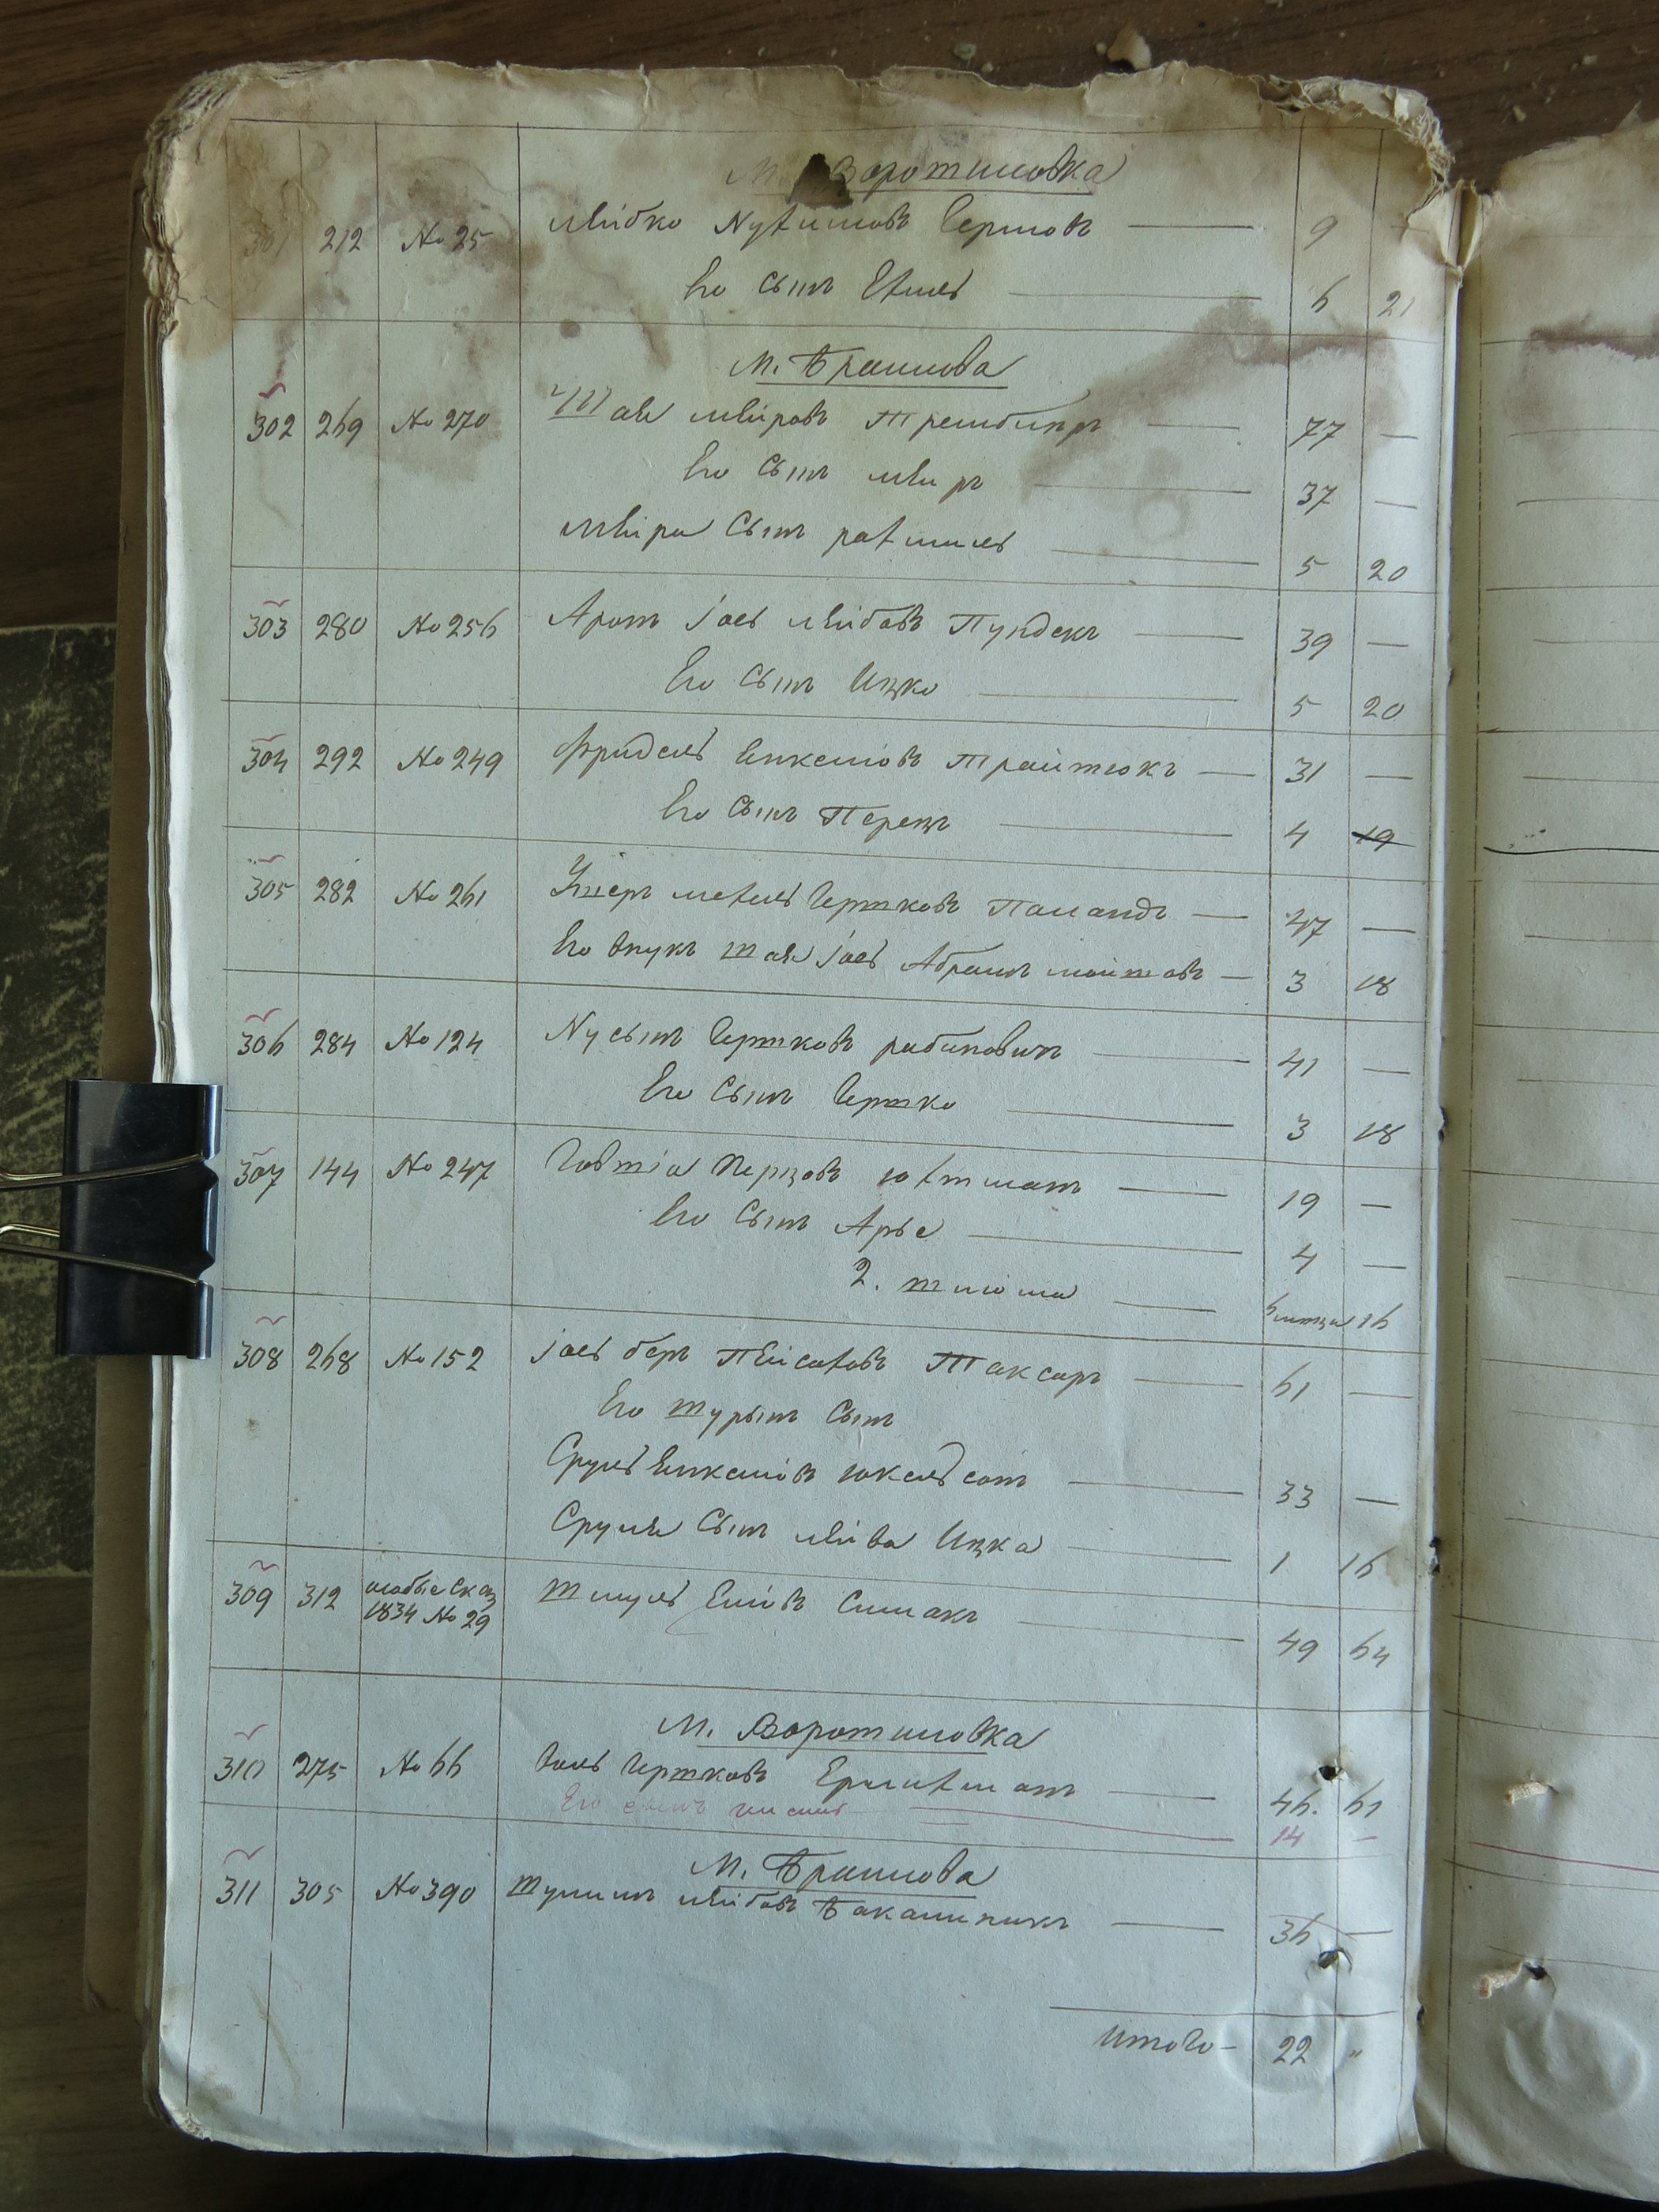 М. Воротиловка
301 212 № 25 Лейбко Нухимовъ Гершовъ — 9 —
Его сынъ Ехиль — 6 21
М. Браилова
302 269 № 270 Шая Меировъ Трембицкъ — 77 —
Его сынъ Меиръ — 37 —
Меира сынъ Рахмиль — 5 20
303 280 № 256 Аронъ Іось Лейбовъ Пундекъ — 39 —
Его сынъ Ицко — 5 20
304 292 № 249 Фридель Янкеліовъ Трайтюкъ — 31 —
Его сынъ Перецъ — 4 19
305 282 № 261 Ушеръ Мехель Гершковъ Паландъ — 47 —
Его внукъ Шая Іось Абрамъ Мошковъ — 3 18
306 284 № 124 Нусынъ Гершковъ Рабиновичъ — 41 —
Его сынъ Гершко — 3 18
307 144 № 247 Говшіа Перцовъ Юхтманъ — 19 —
Его сынъ Арье — 4 —
2. Шліома — 16
308 268 № 152 Іось Беръ Пейсаховъ Таксаръ — 61 —
Его шурынъ сынъ
Сруль Янкеліовъ Юкельсонъ — 33 —
Сруля сынъ Лейва Ицка — 1 16
309 312 особые сказ
1834 № 29 Шмуль Еліовъ Симакъ — 49 64
М. Воротиловка
310 275 № 66 Волъ Гершковъ Ерлихманъ — 46. 61
Его сынъ — 14 —
М. Браилова
311 305 № 390 Шулимъ Лейбовъ Бакалиникъ — 36 —
Итого — 22 "